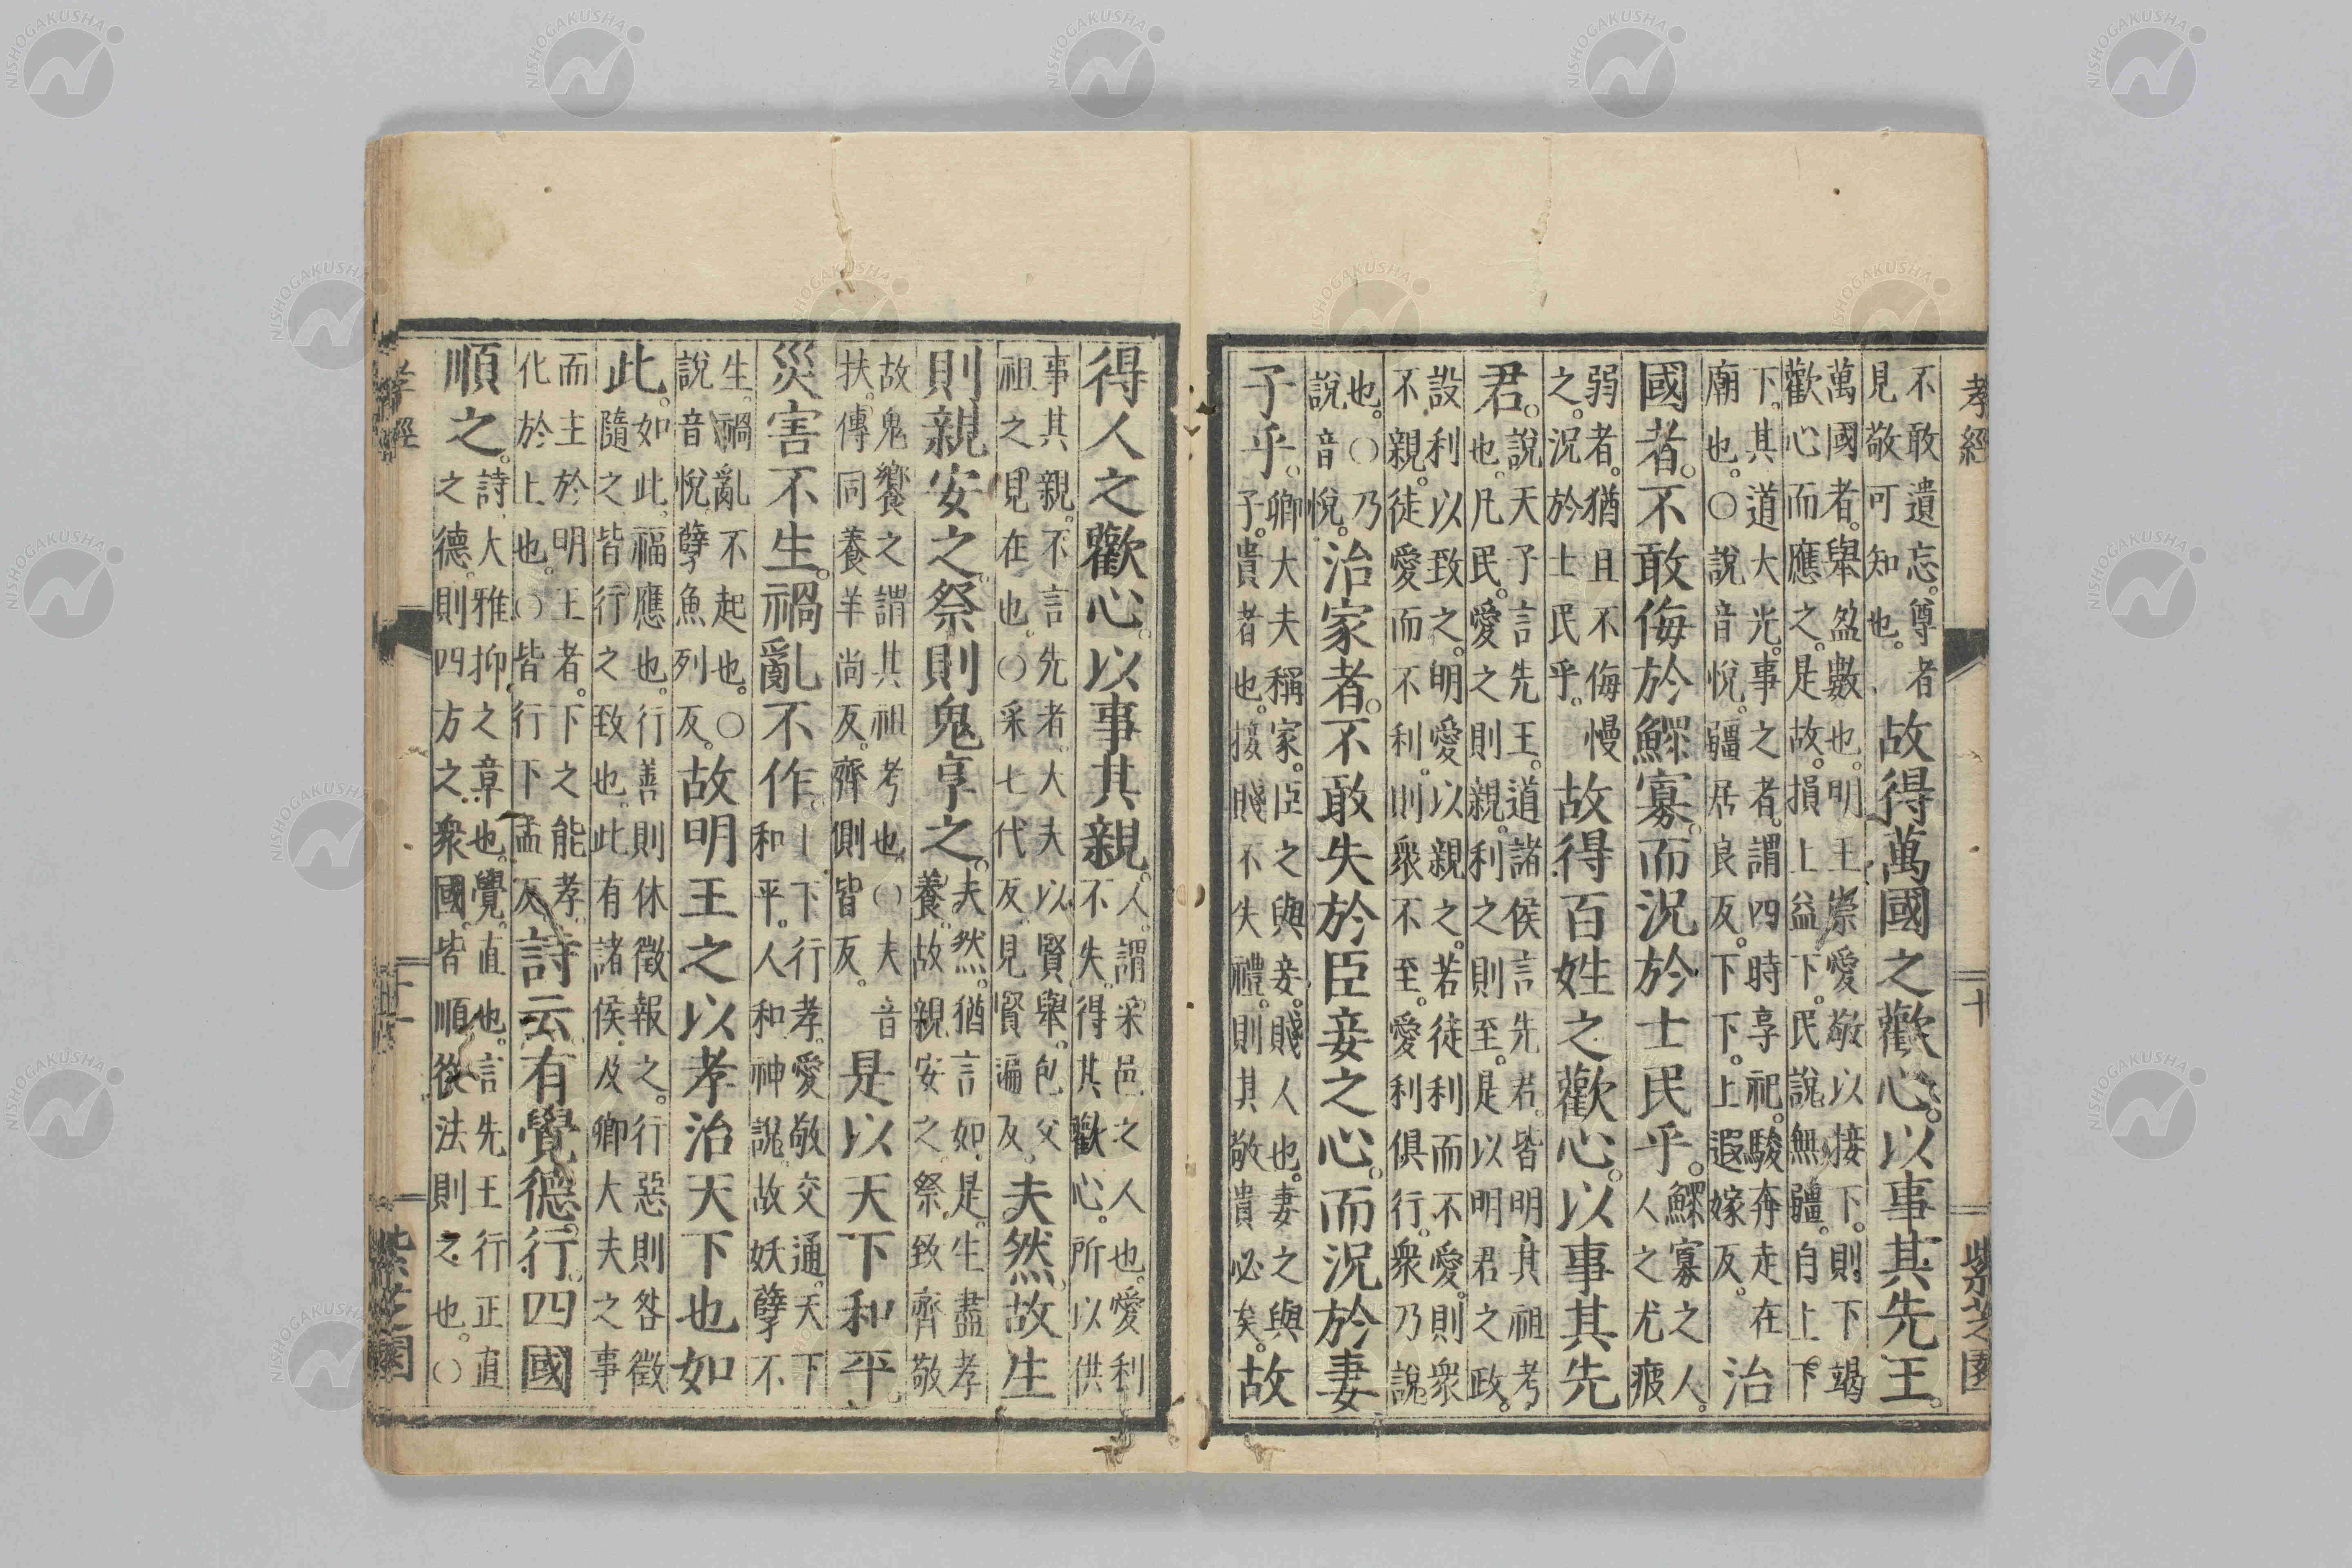 孝經 十 紫芝園
不敢遺忘。尊者見敬可知也。故得萬國之歡心。以事其先王。
萬國者。舉盈數也。明王崇愛敬以接下。則下竭歡心而應之。是故損上益下。民說無疆。自上下
下。其道大光。事之者。謂四時享祀。駿奔走在廟也。○說音悅。疆居良反。下下。上遐嫁反。治
國者。不敢侮於鰥寡。而況於士民乎。鰥寡之人。人之尤疲
弱者。猶且不侮慢之。況於士民乎。故得百姓之歡心。以事其先
君。說天子言先王。道諸侯言先君。皆明其祖考也。凡民愛之則親。利之則至。是以明君之政。
設利以致之。明愛以親之。若徒利而不愛。則衆不親。徒愛而不利。則衆不至。愛利俱行。衆乃說
也。○乃說音悅。治家者。不敢失於臣妾之心。而況於妻
子乎。卿大夫稱家。臣之與妾。賤人也。妻之與子。貴者也。接賤不失禮。則其敬貴必矣。故
得人之歡心。以事其親。人謂采邑之人也。愛利不失。得其歡心。所以供
事其親。不言先者。大夫以賢舉。包父祖之見在也。○采七代反。見賢遍反。夫然。故生
則親安之。祭則鬼亨之。夫然。猶言如是。生盡孝養。故親安之。祭致齊敬
故鬼饗之。謂其祖考也。○夫音扶。傳同。養羊尚反。齊側皆反。是以天下和平。
災害不生。禍亂不作。上下行孝。愛敬交通。天下和平。人和神說。故妖孽不
生。禍亂不起也。○說音悅。孽魚列反。故明王之以孝治天下也如
此。如此。福應也。行善則休徵報之。行惡則咎徵隨之。皆行之致也。此有諸侯。及卿大夫之事
而主於明王者。下之能孝。化於上也。○皆行下孟反。詩云。有覺德行。四國
順之。詩大雅抑之章也。覺。直也。言先王行正直之德。則四方之衆國。皆順從法則之也。○
孝經 十一 紫芝園